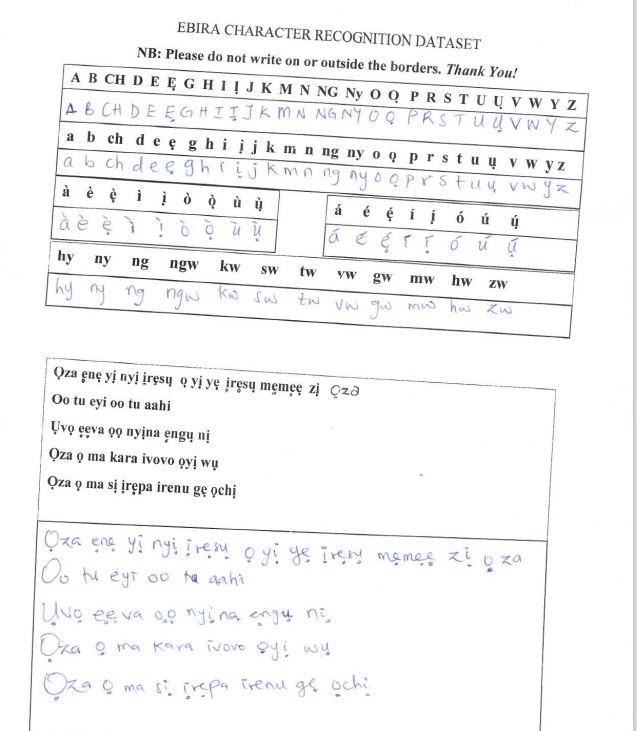 EBIRA CHARACTER RECOGNITION DATASET
NB: Please do not write on or outside the borders. Thank You!
A B CH D E Ẹ G H I Ị J K M N NG Ny O Ọ P R S T U Ụ V W Y Z
A B CH D E Ẹ G H I Ị J K M N NG NY O Ọ P R S T U Ụ V W Y Z
a b ch d e ẹ g h i ị j k m n ng ny o ọ p r s t u ụ v w y z
a b ch d e ẹ g h i ị j k m n ng ny o ọ p r s t u ụ v w y z
à è ẹ̀ ì ị̀ ò ọ̀ ù ụ̀
à è ẹ̀ ì ị̀ ò ọ̀ ù ụ̀
á é ẹ́ í ị́ ó ú ụ́
á é ẹ́ í ị́ ó ú ụ́
hy ny ng ngw kw sw tw vw gw mw hw zw
hy ny ng ngw kw sw tw vw gw mw hw zw
Ọza ẹnẹ yị nyị ịrẹsụ ọ yị yẹ ịrẹsụ mẹmẹẹ zị ọza
Oo tu eyi oo tu aahi
Ụvọ ẹẹva ọọ nyịna ẹngụ nị
Ọza ọ ma kara ivovo ọyị wụ
Ọza ọ ma sị ịrẹpa irenu gẹ ọchị
Ọza ẹnẹ yị nyị ịrẹsụ ọ yị yẹ ịrẹsụ mẹmẹẹ zị ọza
Oo tu eyi oo tu aahi
Ụvọ ẹẹva ọọ nyịna ẹngụ nị
Ọza ọ ma kara ivovo ọyị wụ
Ọza ọ ma sị ịrẹpa irenu gẹ ọchị